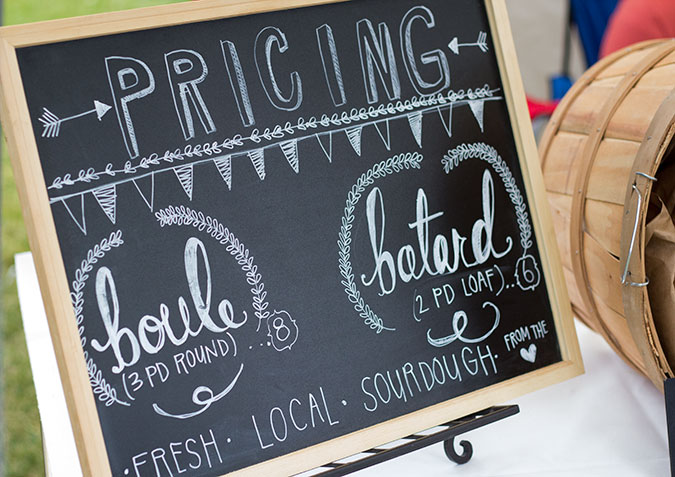 PRICING
boule
(3 PD ROUND)..8
batard
(2 PD LOAF)..6
·FRESH· LOCAL· SOURDOUGH· FROM THE